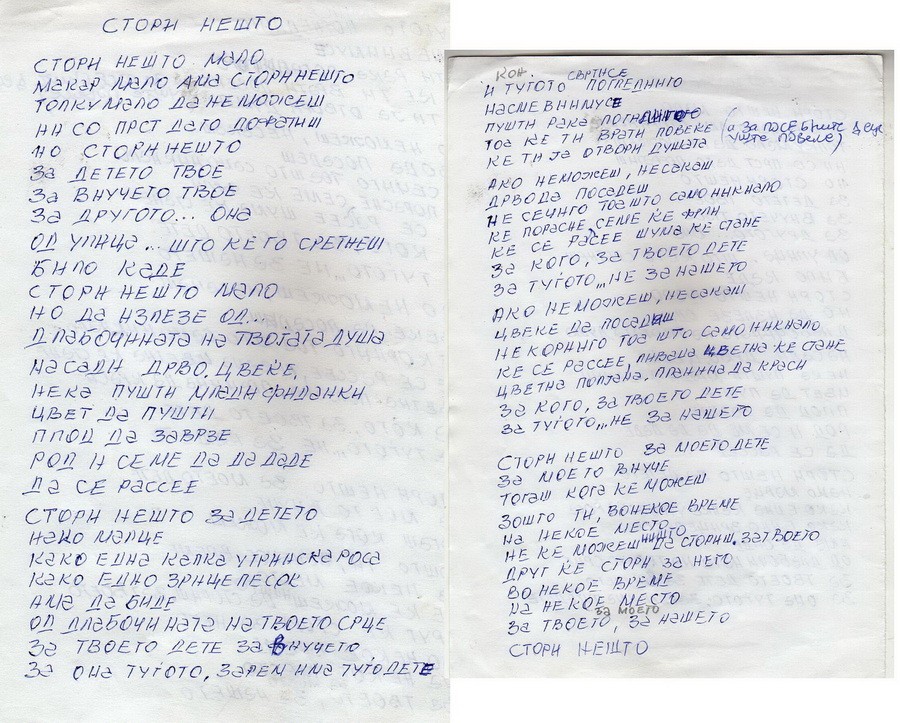 СТОРИ НЕШТО
СТОРИ НЕШТО МАЛО
МАКАР МАЛО АМА СТОРИ НЕШТО
ТОЛКУ МАЛО ДА НЕ МОЖЕШ
НИ СО ПРСТ ДА ГО ДОФАТИШ
НО СТОРИ НЕШТО
ЗА ДЕТЕТО ТВОЕ
ЗА ВНУЧЕТО ТВОЕ
ЗА ДРУГОТО... ОНА
ОД УЛИЦА... ШТО КЕ ГО СРЕТНЕШ
БИЛО КАДЕ
СТОРИ НЕШТО МАЛО
НО ДА ИЗЛЕЗЕ ОД...
ДЛАБОЧИНАТА НА ТВОЈАТА ДУША
НАСАДИ ДРВО, ЦВЕКЕ,
НЕКА ПУШТИ МЛАДИ ФИДАНКИ
ЦВЕТ ДА ПУШТИ
ПЛОД ДА ЗАВРЗЕ
РОД И СЕМЕ ДА ДА ДАДЕ
ДА СЕ РАССЕЕ
СТОРИ НЕШТО ЗА ДЕТЕТО
НАКО МАЛЦЕ
КАКО ЕДНА КАПКА УТРИНСКА РОСА
КАКО ЕДНО ЗРНЦЕ ПЕСОК
АМА ДА БИДЕ
ОД ДЛАБОЧИНАТА НА ТВОЕТО СРЦЕ
ЗА ТВОЕТО ДЕТЕ ЗА ВНУЧЕТО
ЗА ОНА ТУГОТО, ЗАРЕМ ИМА ТУГО ДЕТЕ
КОН. СВРТИ СЕ
И ТУГОТО ПОГЛЕДНИГО
НАСМЕВНИМУСЕ
ПУШТИ РАКА
ТОА КЕ ТИ ВРАТИ ПОВЕКЕ (И ЗА ПОСЕБНИТЕ ДЕЦА УШТЕ ПОВЕЌЕ)
КЕ ТИ ЈА ОТВОРИ ДУШАТА
АКО НЕМОЖЕШ, НЕСАКАШ
ДРВО ДА ПОСАДЕШ
НЕ СЕЧИГО ТОА ШТО САМО НИКНАЛО
КЕ ПОРАСНЕ, СЕМЕ КЕ ФРЛИ
КЕ СЕ РАСЕЕ ШУМА КЕ СТАНЕ
ЗА КОГО, ЗА ТВОЕТО ДЕТЕ
ЗА ТУГОТО,,, НЕ ЗА НАШЕТО
АКО НЕМОЖЕШ, НЕСАКАШ
ЦВЕКЕ ДА ПОСАДИШ
НЕ КОРНИГО ТОА ШТО САМО НИКНАЛО
КЕ СЕ РАССЕЕ, ЛИВАДА ЦВЕТНА КЕ СТАНЕ
ЦВЕТНА ПОЛЈАНА. ПЛАНИНА ДА КРАСИ
ЗА КОГО, ЗА ТВОЕТО ДЕТЕ
ЗА ТУГОТО,,, НЕ ЗА НАШЕТО
СТОРИ НЕШТО ЗА МОЕТО ДЕТЕ
ЗА МОЕТО ВНУЧЕ
ТОГАШ КОГА КЕ МОЖЕШ
ЗОШТО ТИ, ВО НЕКОЕ ВРЕМЕ
НА НЕКОЕ МЕСТО
НЕ КЕ МОЖЕШ НИШТО ДА СТОРИШ. ЗА ТВОЕТО
ДРУГ КЕ СТОРИ ЗА НЕГО
ВО НЕКОЕ ВРЕМЕ
НА НЕКОЕ МЕСТО
ЗА ТВОЕТО, ЗА МОЕТО, ЗА НАШЕТО
СТОРИ НЕШТО